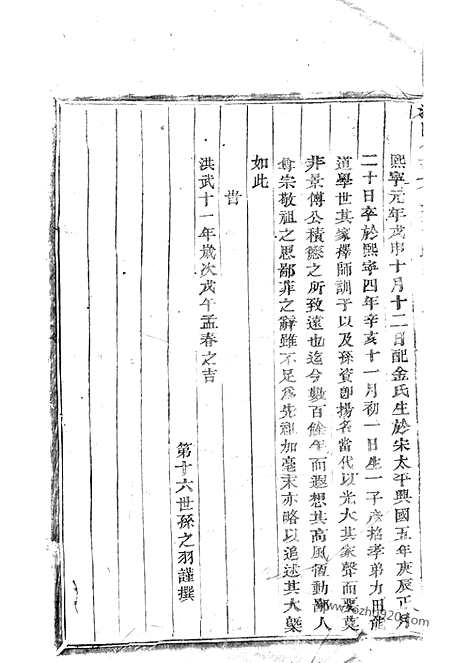 熙寧元年戊申十月十二日配金氏生於宋太平興國五年庚辰正月
二十日卒於熙寧四年辛亥十一月初一日生一子彥格孝弟力田能
道學世其家擇師訓子以及孫資卽揚名當代以光大其家聲而要莫
非景傅公積德之所致遠也迄今數百餘年而遐想其高風恆動鄙人
尊宗敬祖之思鄙菲之辭雖不足爲先祖加毫末亦略以追述其大槩
如此
旹
洪武十一年歲次戊午孟春之吉
第十六世孫之羽謹撰